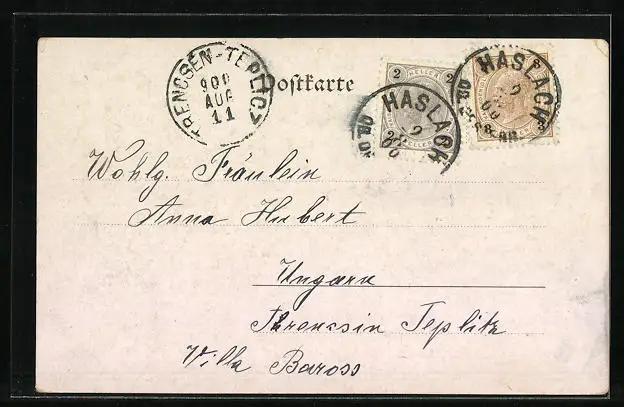 TRENCSÉN-TEPLICZ
900
AUG
11
Postkarte
2 HELLER 2
HASLACH
HASLACH
Wohlg. Fräulein
Anna Hubert
Ungarn
Threncsin Teplitz
Villa Baross